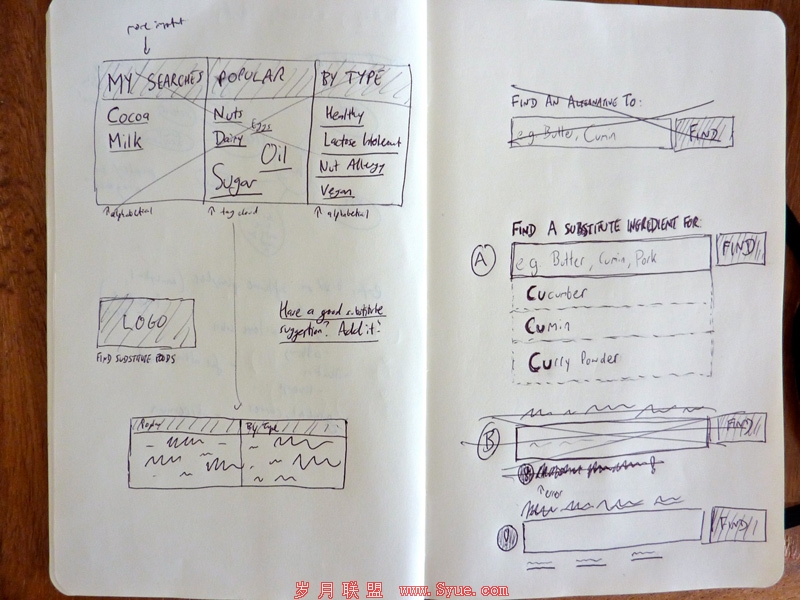 MY SEARCHES
POPULAR
BY TYPE
Cocoa
Milk
Nuts
Eggs
Dairy
Oil
Sugar
Healthy
Lactose Intolerant
Nut Allergy
Vegan
↑ alphabetical
↑ tag cloud
↑ alphabetical
LOGO
FIND SUBSTITUTE FOODS
Have a good substitute
suggestion? Add it!
By Type
FIND AN ALTERNATIVE TO:
e.g. Butter, Cumin
FIND
FIND A SUBSTITUTE INGREDIENT FOR:
A
e.g. Butter, Cumin, Pork
FIND
Cucumber
Cumin
Curry Powder
B
FIND
↑ error
FIND
岁月联盟 www.Syue.com